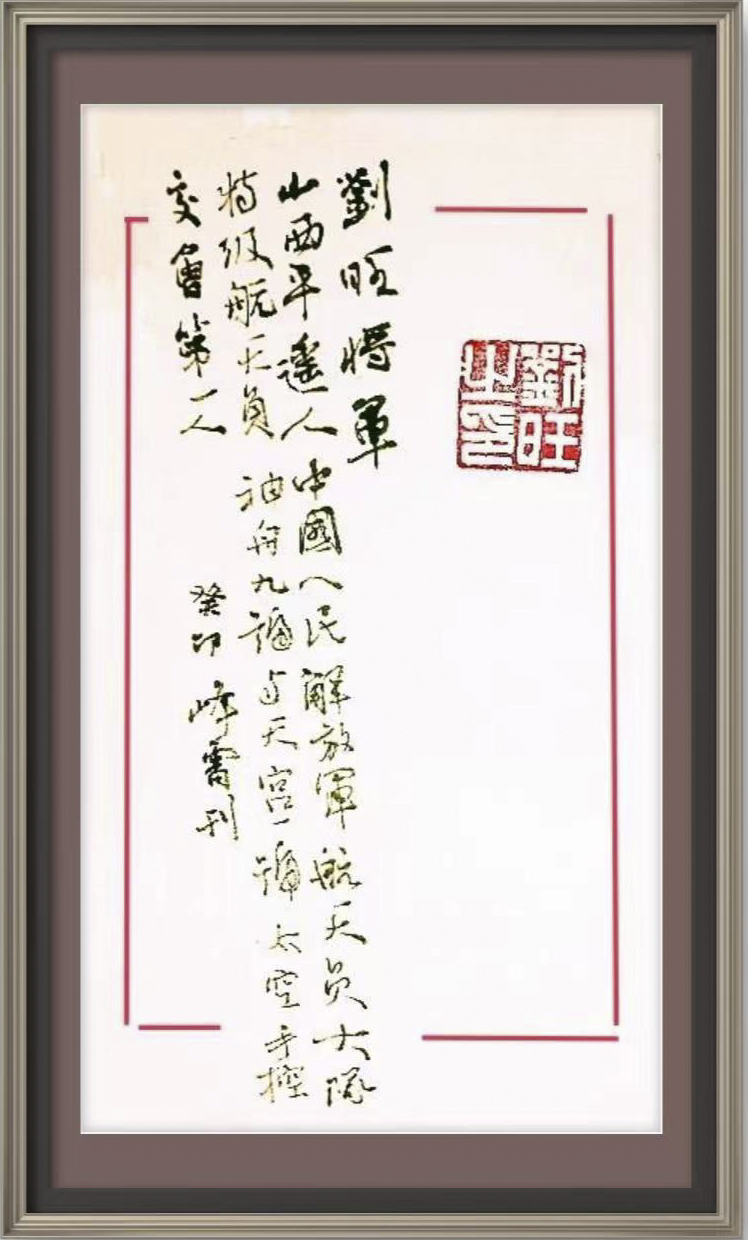 劉旺
之印
劉旺將軍
山西平遙人 中國人民解放軍航天员大隊
特级航天員 神舟九號与天宮一號太空手控
交會第一人 癸卯 峰雷刊